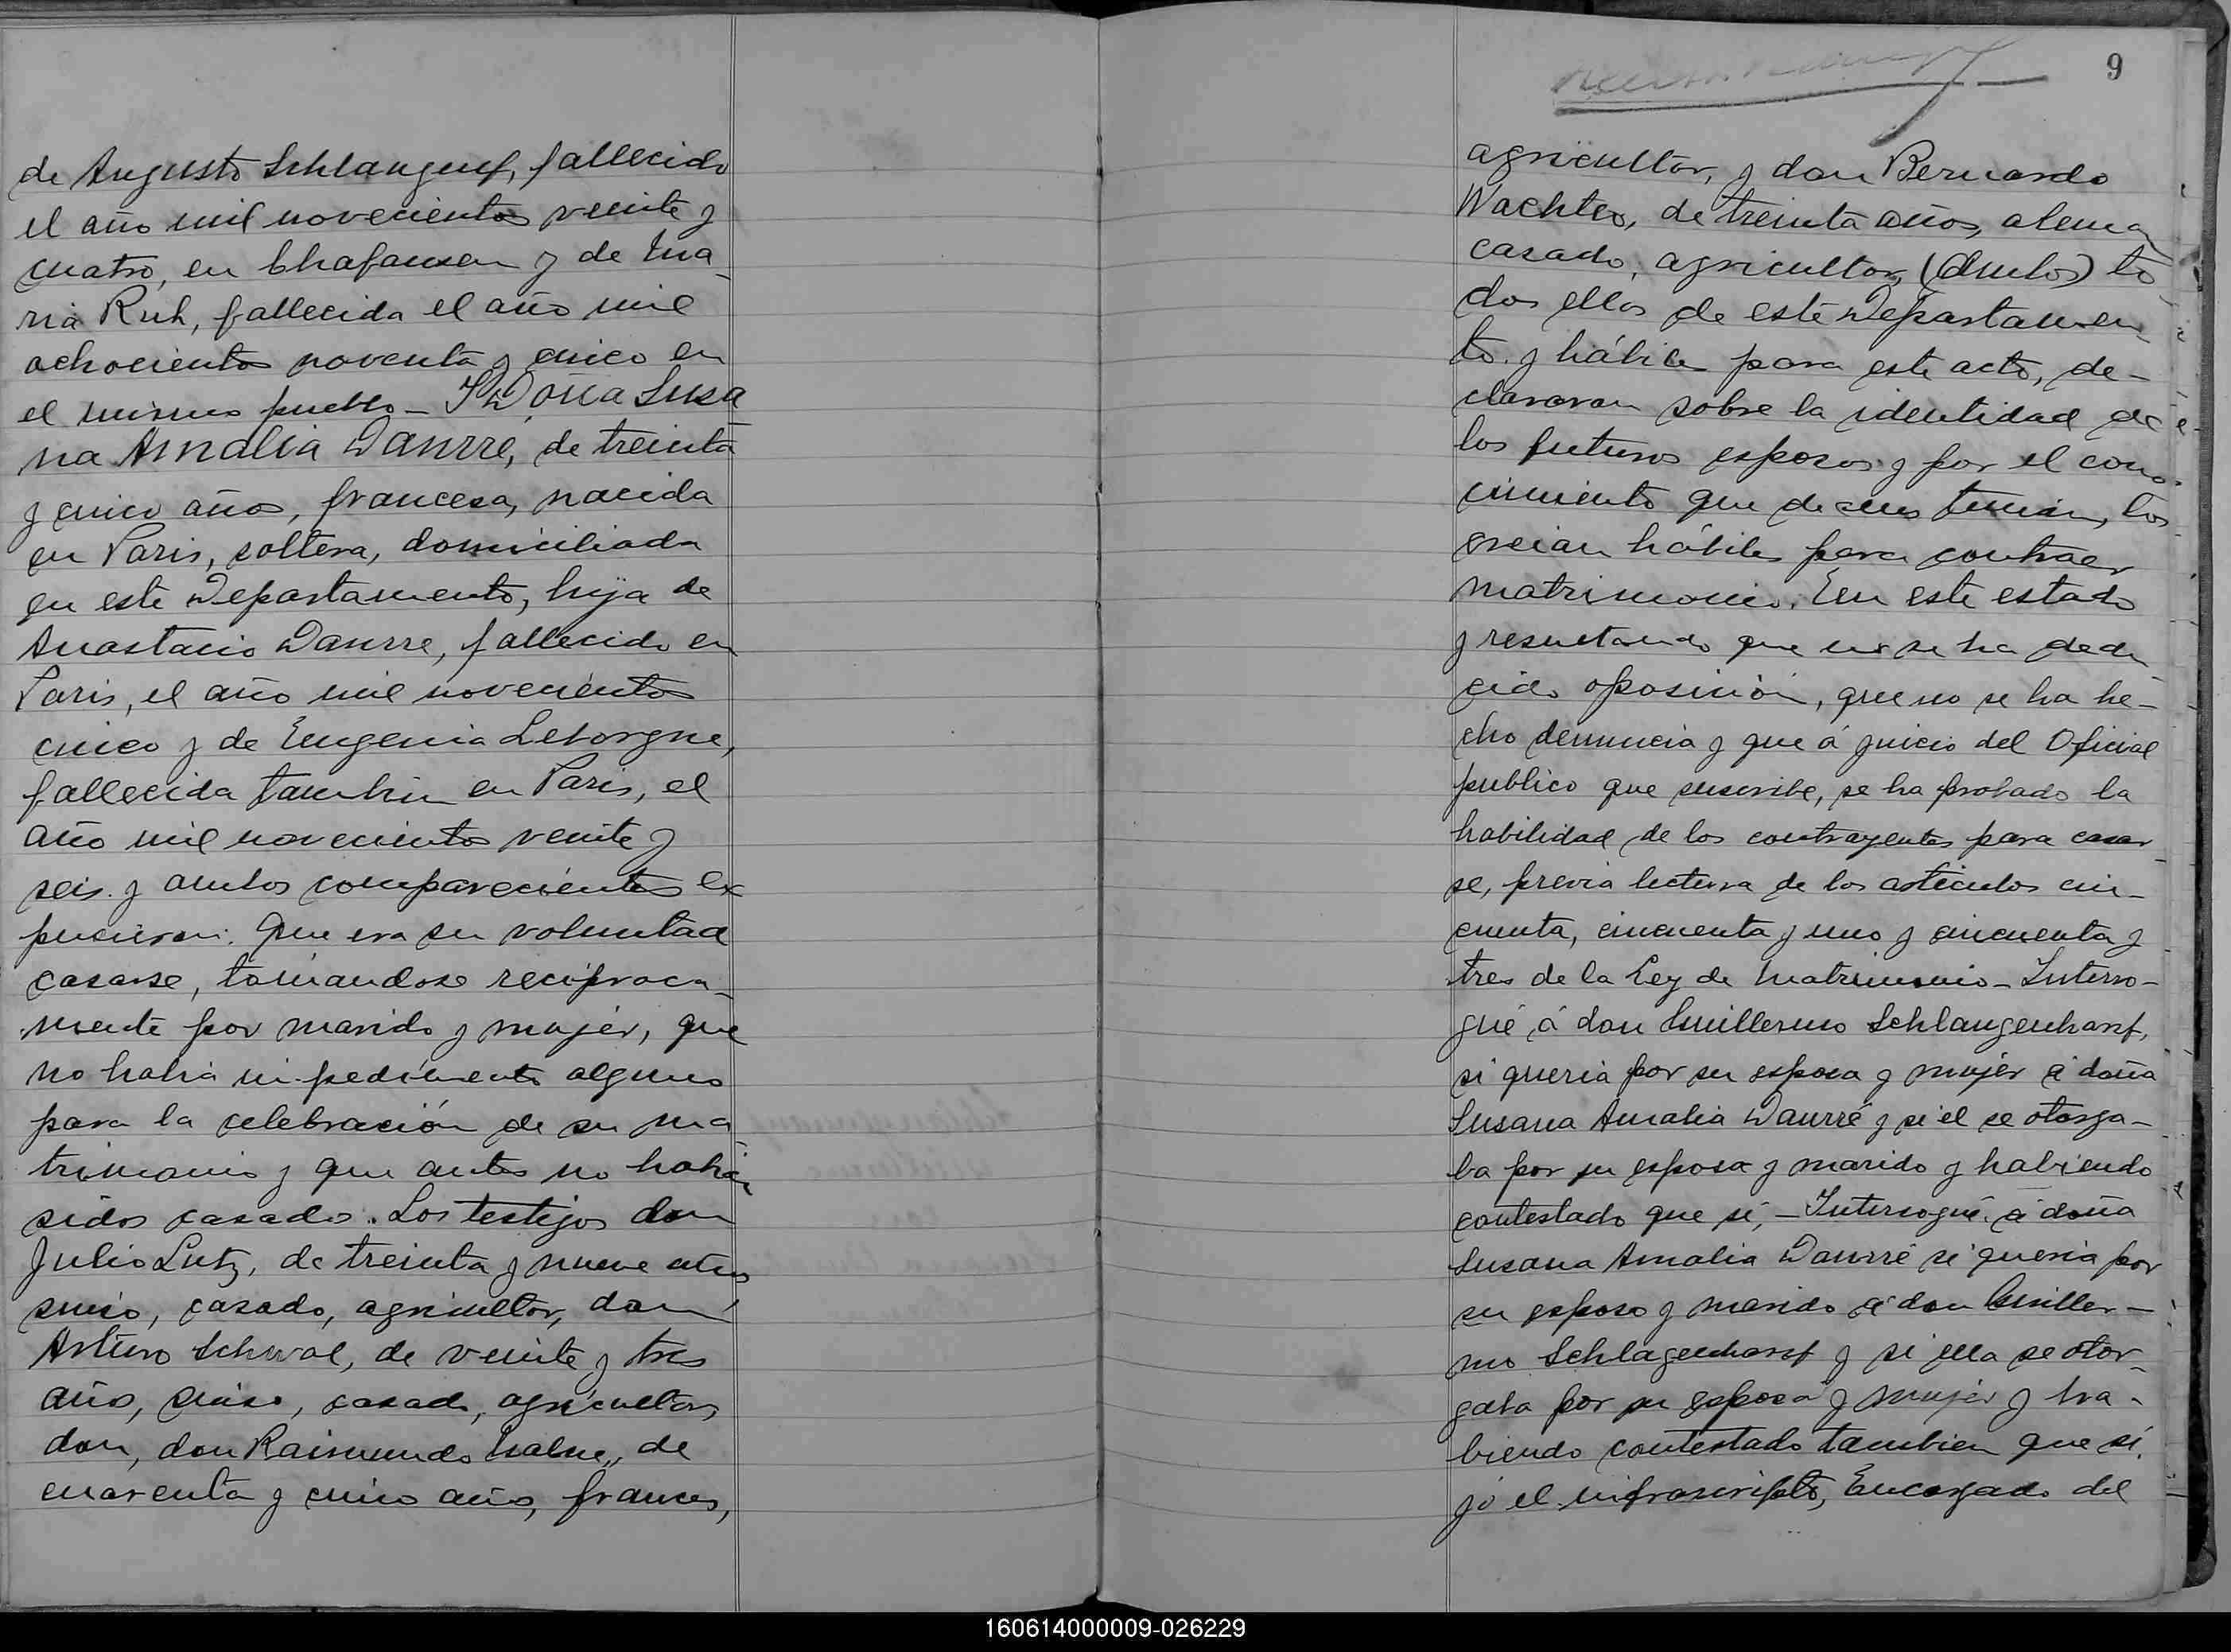 de Augusto Schlangenf, fallecido
el año mil novecientos veinte y
cuatro, en Chafausen y de Ma-
ria Ruh, fallecida el año mil
ochocientos noventa y cinco en
el mismo pueblo - Y Doña Susa
na Amalia Daurré, de treinta
y cinco años, francesa, nacida
en Paris, soltera, domiciliada
en este Departamento, hija de
Anastacio Daurre, fallecido en
Paris, el año mil novecientos
cinco y de Eugenia Letorgne,
fallecida tambien en Paris, el
año mil novecientos veinte y
seis. y ambos comparecientes ex
pusieron: Que era su voluntad
casarse, tomandose reciproca-
mente por marido y mujer, que
no habia impedimento alguno
para la celebración de su ma
trimonio y que antes no habian
sidos casados. Los testigos don
Julio Lutz, de treinta y nueve años
suiso, casado, agricultor, don
Arturo Schwal, de veinte y tres
años, suiso, casado, agricultor,
don, don Raimundo de
cuarenta y cinco años, frances,
9
agricultor, y don Bernardo
Wachter, de treinta años, aleman
casado, agricultor, (ambos) to
dos ellos de este Departamen
to. y hábiles para este acto, de-
clararon sobre la identidad de
los futuros esposos y por el cono-
cimiento que de ellos tenian, los
creian hábiles para contraer
matrimonio. En este estado
y resultando que no se ha dedu
cido oposición, que no se ha he-
cho denuncia y que á juicio del Oficial
publico que suscribe, se ha probado la
habilidad de los contrayentes para casar
se, previa lectura de los artículos cin-
cuenta, cincuenta y uno y cincuenta y
tres de la Ley de Matrimonio - Interro-
gué á don Guillermo Schlangenharf,
si queria por su esposa y mujer á doña
Susana Amalia Daurré y si él se otorga-
ba por su esposo y marido y habiendo
contestado que sí, - Interrogué á doña
Susana Amalia Daurré si queria por
su esposo y marido á don Guiller-
mo Schlagenharf y si ella se otor-
gaba por su esposa y mujer y ha-
biendo contestado tambien que sí.
yo el infrascripto, Encargado del
160614000009-026229